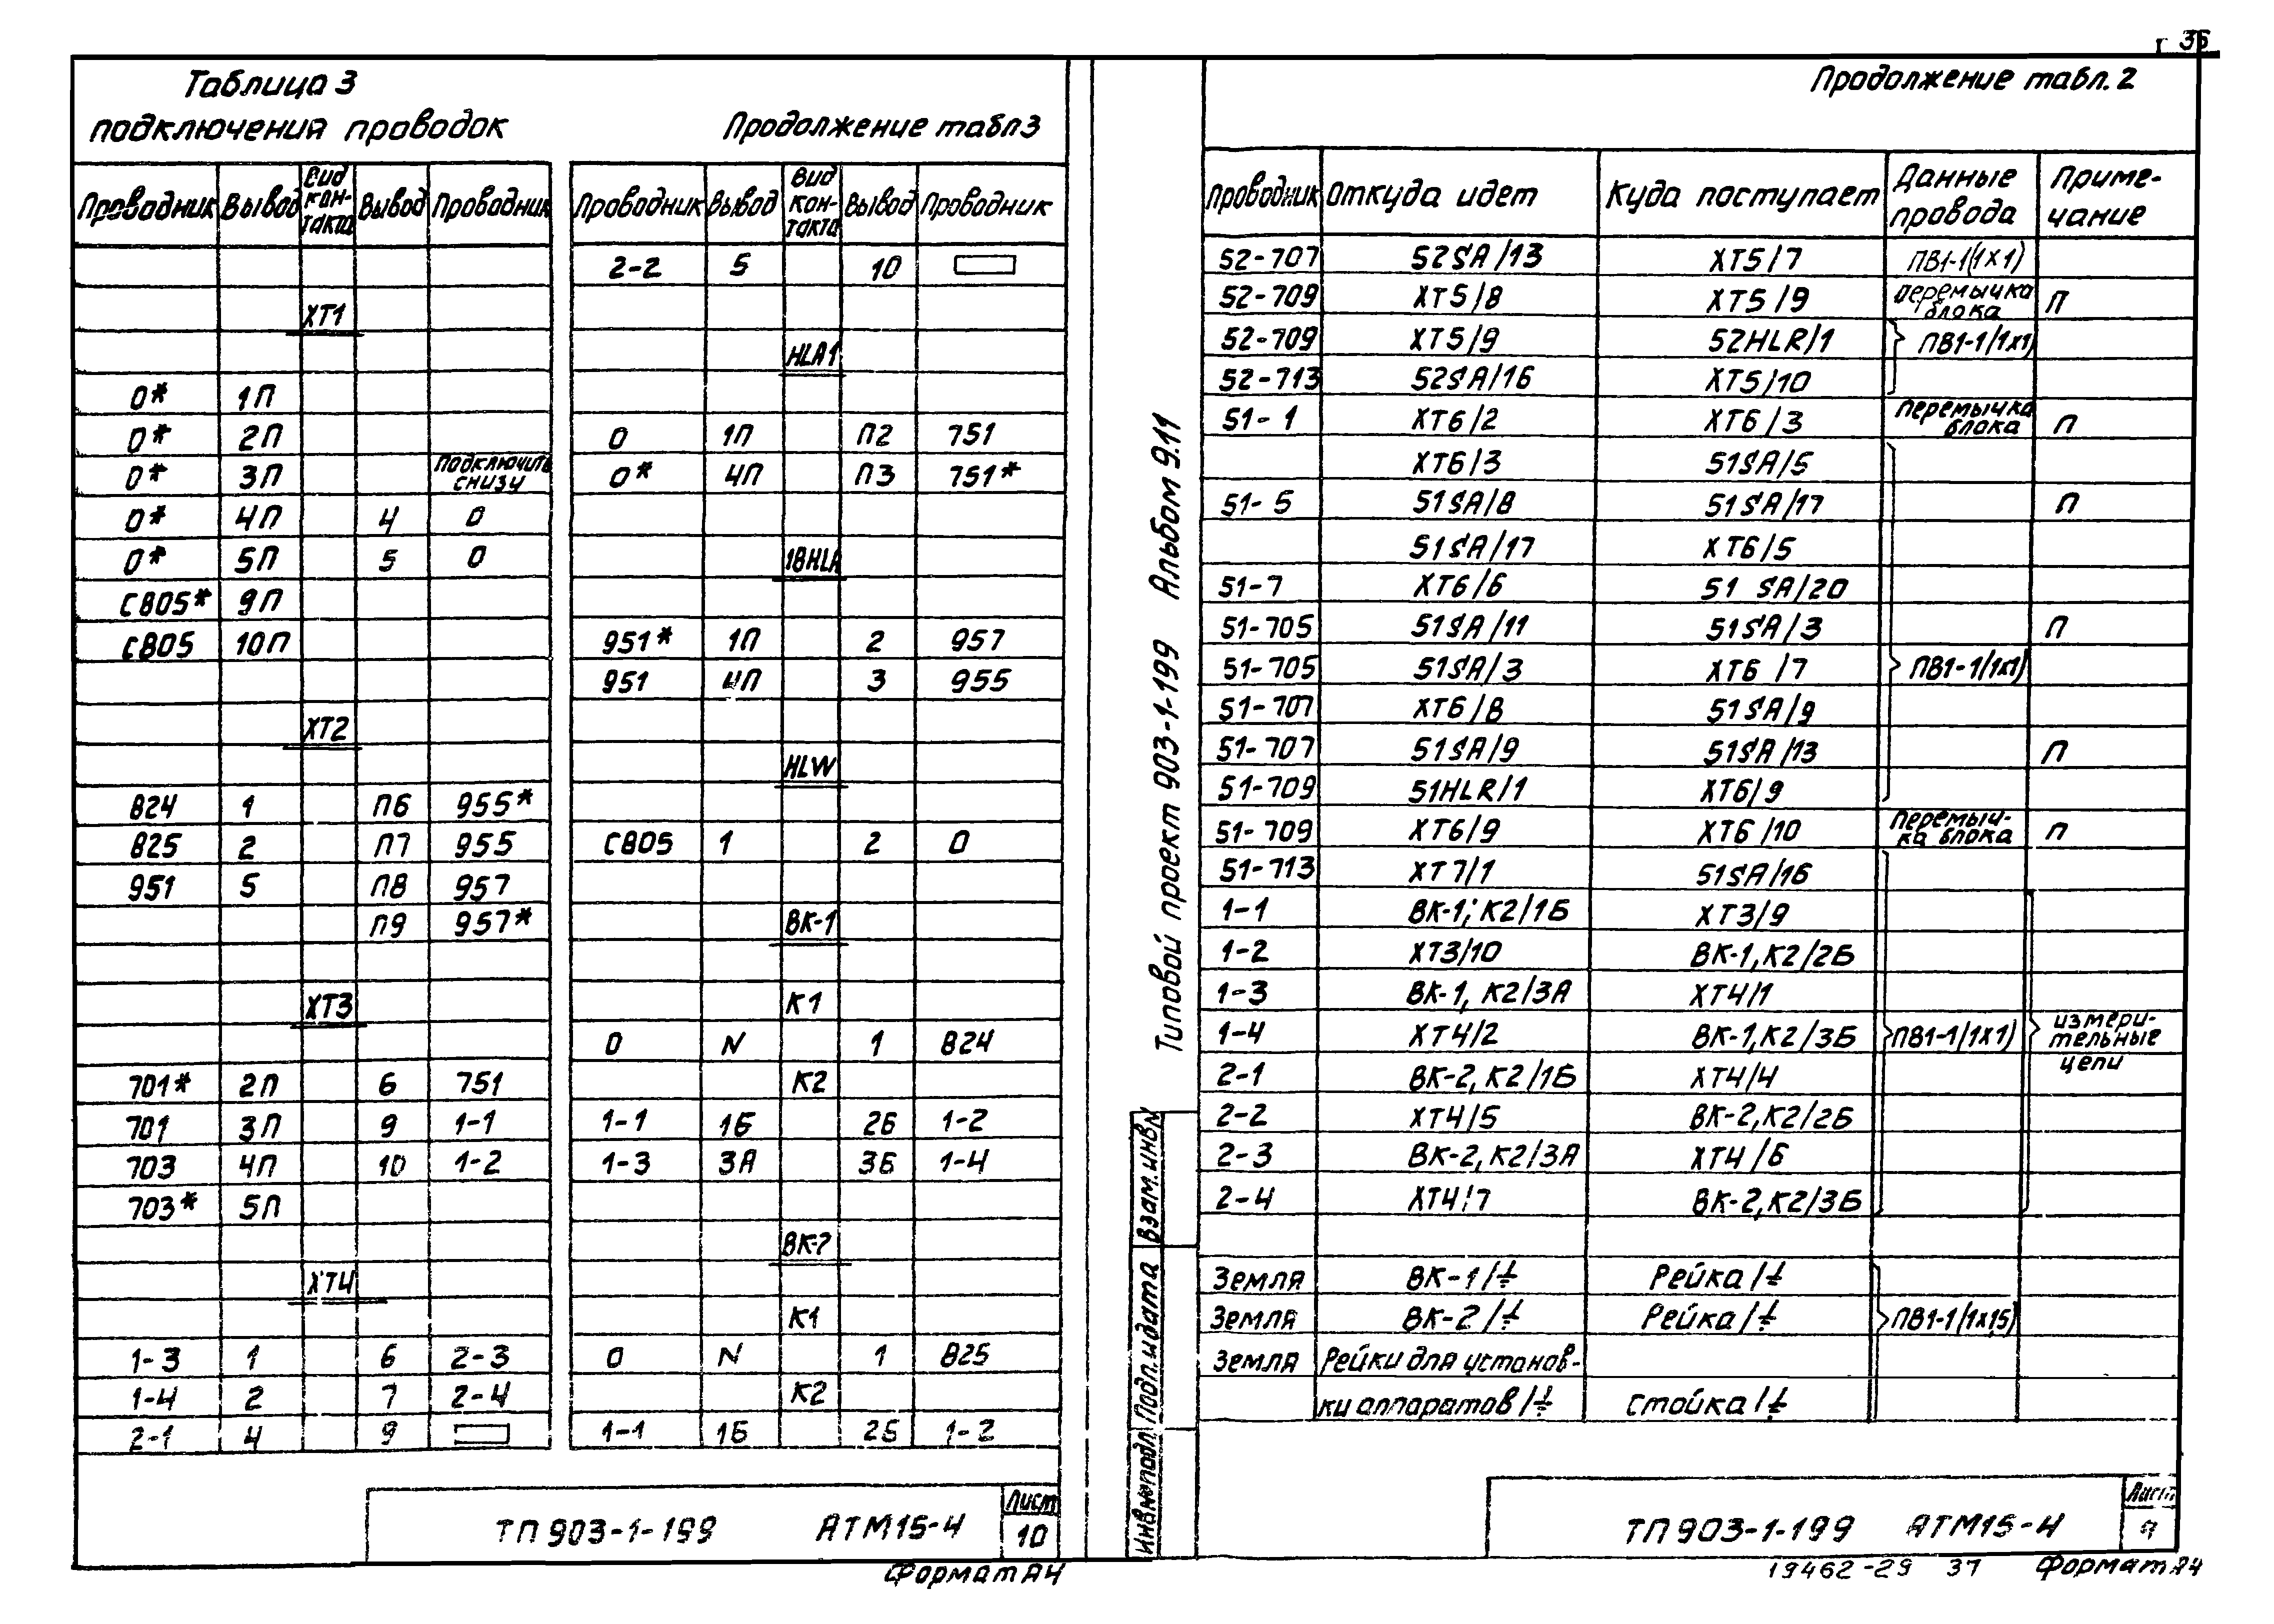 36
Таблица 3
подключения проводок
Проводник Вывод Вид контакта Вывод Проводник
ХТ1
0* 1П
0* 2П
0* 3П Подключить снизу
0* 4П 4 0
0* 5П 5 0
С805* 9П
С805 10П
ХТ2
824 1 П6 955*
825 2 П7 955
951 5 П8 957
П9 957*
ХТ3
701* 2П 6 751
701 3П 9 1-1
703 4П 10 1-2
703* 5П
ХТ4
1-3 1 6 2-3
1-4 2 7 2-4
2-1 4 9
Продолжение табл 3
Проводник Вывод Вид контакта Вывод Проводник
2-2 5 10
HLA1
0 1П П2 751
0* 4П П3 751*
18HLA
951* 1П 2 957
951 4П 3 955
HLW
С805 1 2 0
ВК-1
К1
0 N 1 824
К2
1-1 1Б 2Б 1-2
1-3 3А 3Б 1-4
ВК-2
К1
0 N 1 825
К2
1-1 1Б 2Б 1-2
ТП 903-1-199 АТМ15-4
Лист
10
Формат А4
Типовой проект 903-1-199 Альбом 9.11
Взам. инв.N
Подп. и дата
Инв. № подл.
Продолжение табл. 2
Проводник Откуда идет Куда поступает Данные провода Примечание
52-707 52SA/13 ХТ5/7 ПВ1-1(1х1)
52-709 ХТ5/8 ХТ5/9 перемычка блока П
52-709 ХТ5/9 52HLR/1 ПВ1-1/1х1)
52-713 52SA/16 ХТ5/10
51-1 ХТ6/2 ХТ6/3 Перемычка блока П
ХТ6/3 51SA/5
51-5 51SA/8 51SA/17 П
51SA/17 ХТ6/5
51-7 ХТ6/6 51 SA/20
51-705 51SA/11 51SA/3 П
51-705 51SA/3 ХТ6/7 ПВ1-1/1х1)
51-707 ХТ6/8 51SA/9
51-707 51SA/9 51SA/13 П
51-709 51HLR/1 ХТ6/9
51-709 ХТ6/9 ХТ6/10 Перемычка блока П
51-713 ХТ7/1 51SA/16
1-1 ВК-1; К2/1Б ХТ3/9
1-2 ХТ3/10 ВК-1, К2/2Б
1-3 ВК-1, К2/3А ХТ4/1
1-4 ХТ4/2 ВК-1, К2/3Б ПВ1-1/1х1) измерительные цепи
2-1 ВК-2, К2/1Б ХТ4/4
2-2 ХТ4/5 ВК-2, К2/2Б
2-3 ВК-2, К2/3А ХТ4/6
2-4 ХТ4/7 ВК-2, К2/3Б
Земля ВК-1/⏚ Рейка/⏚
Земля ВК-2/⏚ Рейка/⏚ ПВ1-1/1х1,5)
Земля Рейки для установ-
ки аппаратов/⏚ стойка/⏚
ТП 903-1-199 АТМ15-4
Лист
9
19462-29 37 Формат А4